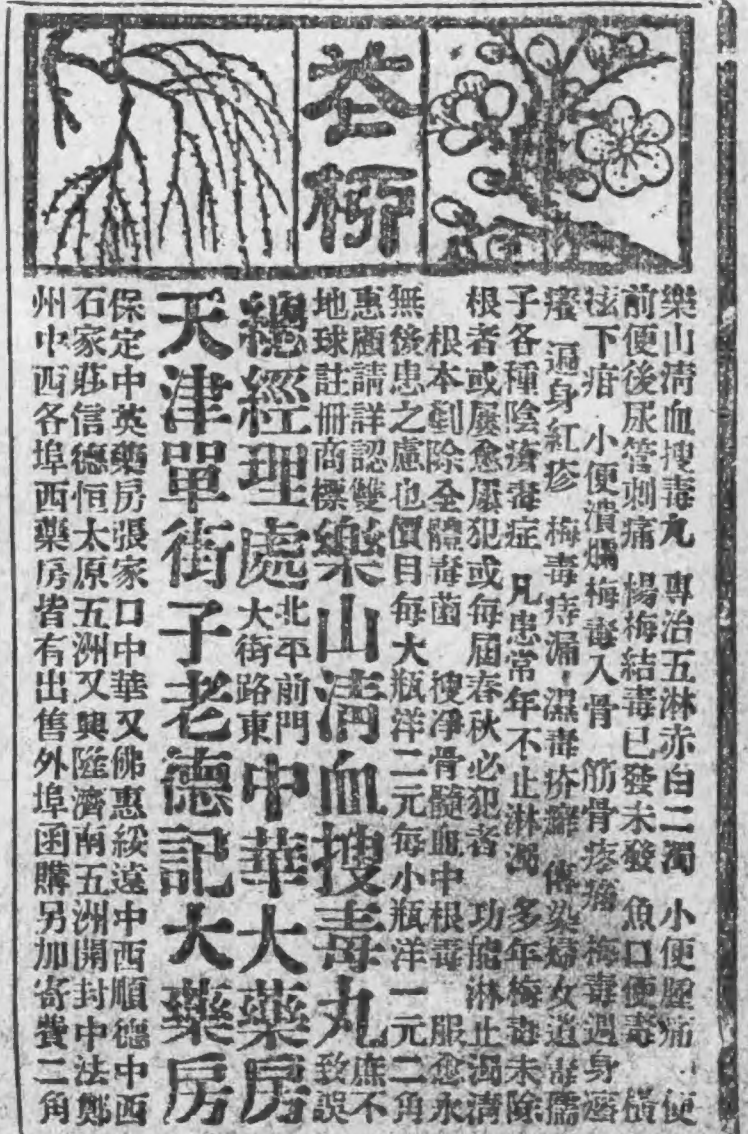 花柳
樂山清血搜毒丸 專治五淋赤白二濁 小便腫痛 便
前便後尿管刺痛 楊梅結毒已發未發 魚口便毒 橫
痃下疳 小便潰爛梅毒入骨 筋骨疼痛 梅毒遍身
遍身紅疹 梅毒痔漏 濕毒疥癬 傳染婦女遺毒孺
子各種陰瘡毒症 凡患常年不止淋濁 多年梅毒未除
根者或屢愈屢犯或每屆春秋必犯者 功能淋止濁清
根本剷除全體毒菌 搜凈骨髓血中根毒 服愈永
無後患之慮也價目每大瓶洋二元每小瓶洋一元二角
惠顧請詳認雙
地球註冊商標樂山清血搜毒丸庶不
致誤
總經理處北平前門
大街路東中華大藥房
天津單街子老德記大藥房
保定中英藥房張家口中華又佛惠綏遠中西順德中西
石家莊信德恒太原五洲又興隆濟南五洲開封中法鄭
州中西各埠西藥房皆有出售外埠函購另加寄費二角